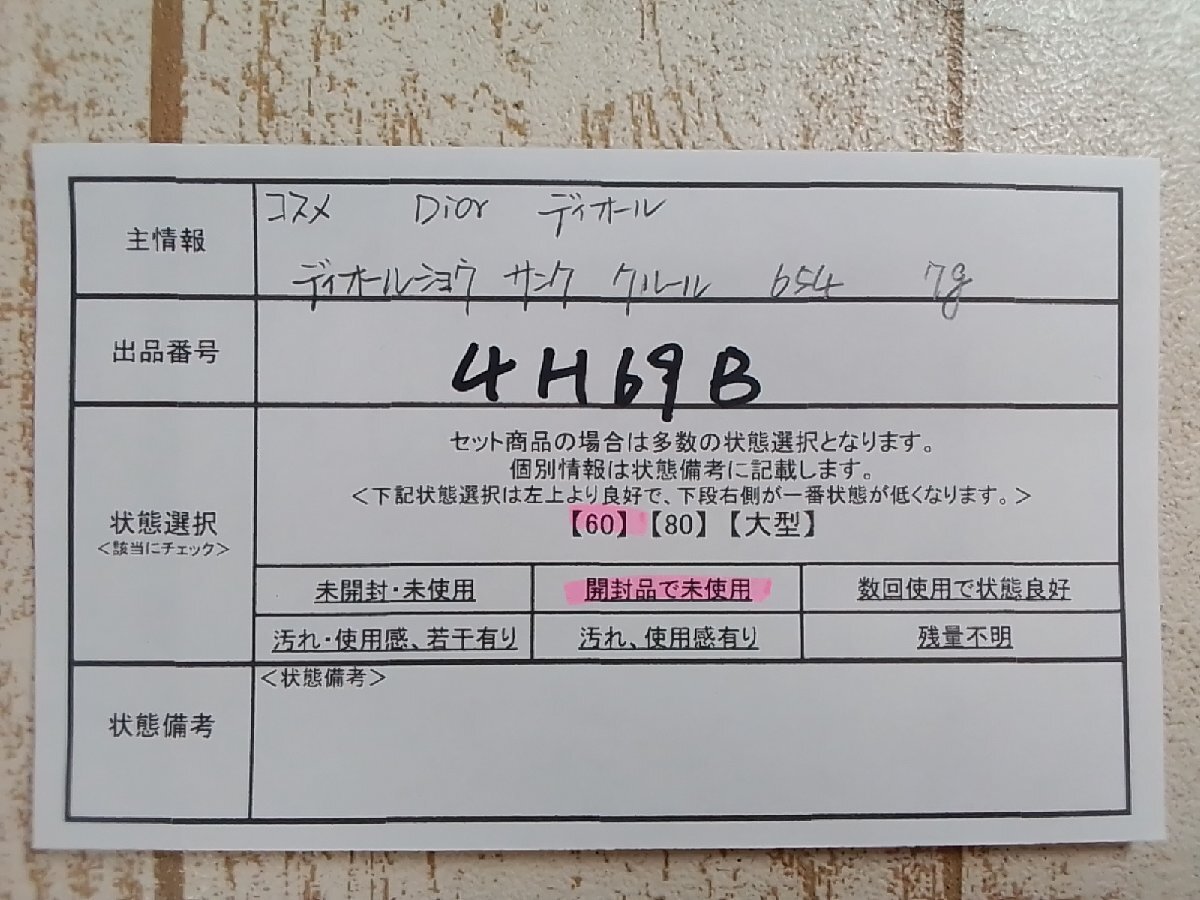 主情報
コスメ Dior ディオール
ディオールショウ サンク クルール 654 7g
出品番号
4H69B
状態選択
<該当にチェック>
セット商品の場合は多数の状態選択となります。
個別情報は状態備考に記載します。
<下記状態選択は左上より良好で、下段右側が一番状態が低くなります。>
【60】【80】【大型】
未開封・未使用 開封品で未使用 数回使用で状態良好
汚れ・使用感、若干有り 汚れ、使用感有り 残量不明
状態備考
<状態備考>